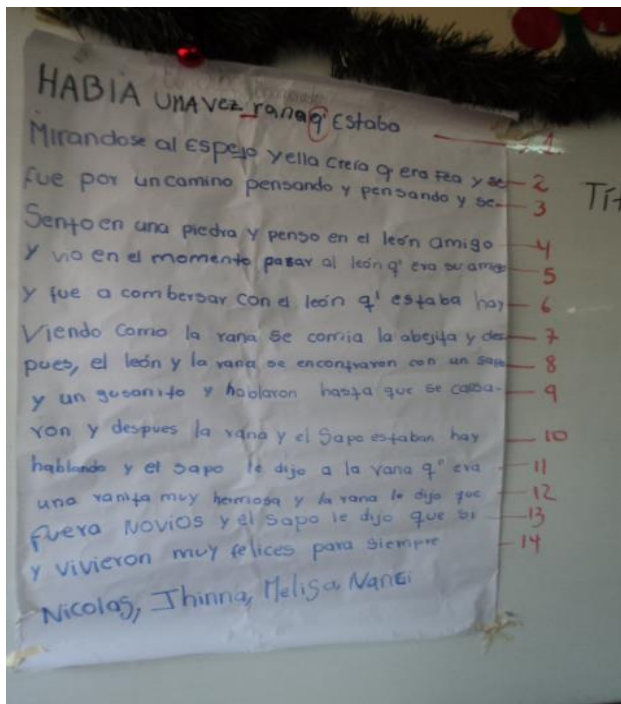 HABIA UNA VEZ rana q' Estaba 1
Mirandose al Espejo y ella creia q era fea y se 2
fue por un camino pensando y pensando y se 3
Sento en una piedra y penso en el león amigo 4
y vio en el momento pasar al león q' era su amigo 5
y fue a combersar con el león q' estaba hay 6
Viendo Como la rana se comia la abejita y des 7
pues, el león y la rana se encontraron con un sapo 8
y un gusanito y hablaron hasta que se cansa- 9
ron y despues la rana y el Sapo estaban hay 10
hablando y el sapo le dijo a la rana q' era 11
una ranita muy hermosa y la rana le dijo que 12
fuera NOVIOS y el sapo le dijo que si 13
y vivieron muy felices para siempre 14
Nicolas, Jhinna, Melisa, Nanci
Tít